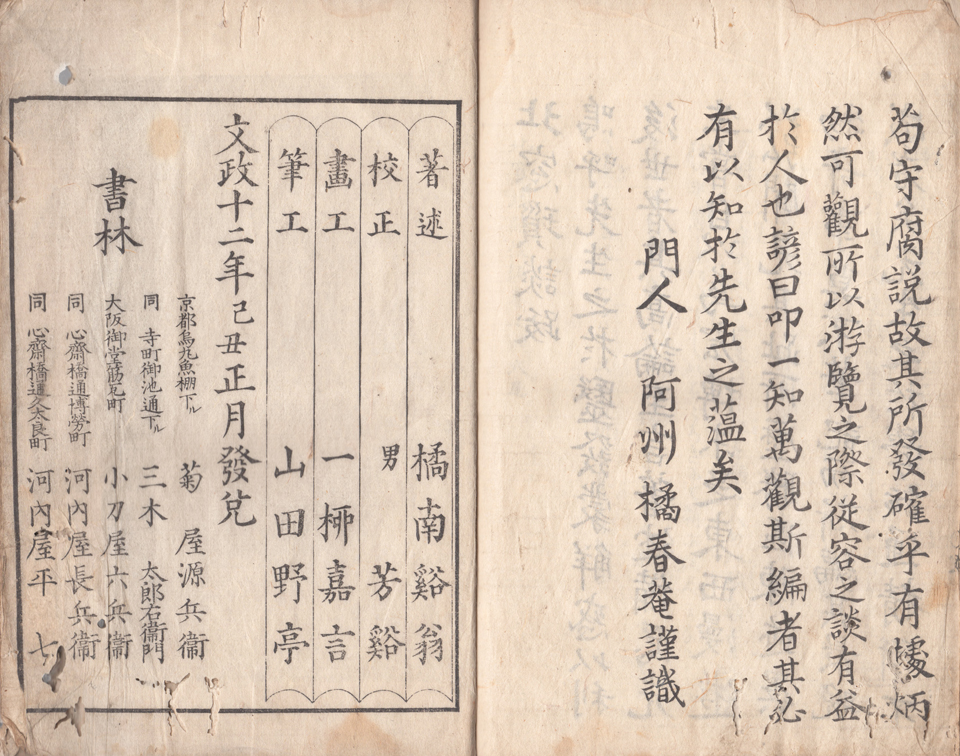 苟守腐説故其所發確乎有據炳
然可觀所以游覽之際從容之談有益
於人也諺曰叩一知萬觀斯編者其必
有以知於先生之蘊矣
門人 阿州 橘春菴謹識
著述 橘南谿翁
校正 男 芳谿
畫工 一栁嘉言
筆工 山田野亭
文政十二年己丑正月發兌
書林
京都烏丸魚棚下ル 菊屋源兵衞
同 寺町御池通下ル 三木太郎右衞門
大阪御堂筋瓦町 小刀屋六兵衞
同 心齋橋通博勞町 河内屋長兵衞
同 心齋橋通久太良町 河内屋平七